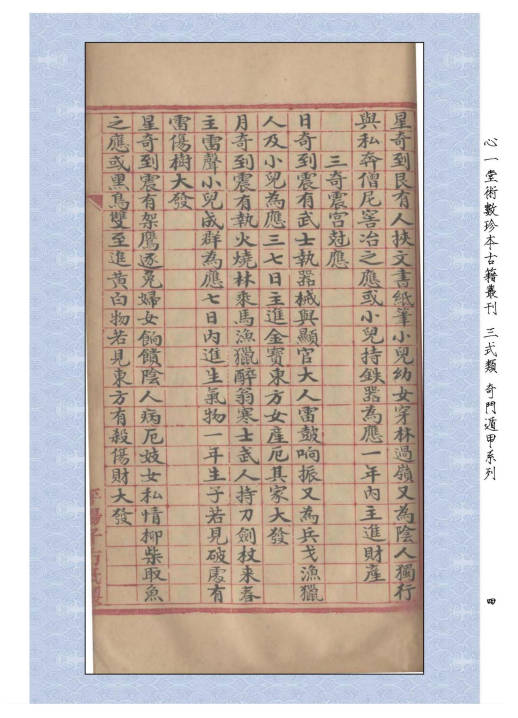 星奇到艮有人挾文書紙筆小兒幼女穿林過嶺又為陰人獨行
與私奔僧尼窰冶之應或小兒持鉄器為應一年內主進財產
三奇震宮尅應
日奇到震有武士執器械與顯官大人雷鼓响振又為兵戈漁獵
人及小兒為應三七日主進金寶東方女產厄其家大發
月奇到震有執火燒林乘馬漁獵醉翁寒士武人持刀劍杖來舂
主雷聲小兒成群為應七日內進生氣物一年生子若見破處有
雷傷樹大發
星奇到震有架鷹逐兔婦女餉饋陰人病厄妓女私情柳柴取魚
之應或黑鳥雙至進黃白物若見東方有殺傷財大發
心一堂術數珍本古籍叢刊 三式類 奇門遁甲系列
四